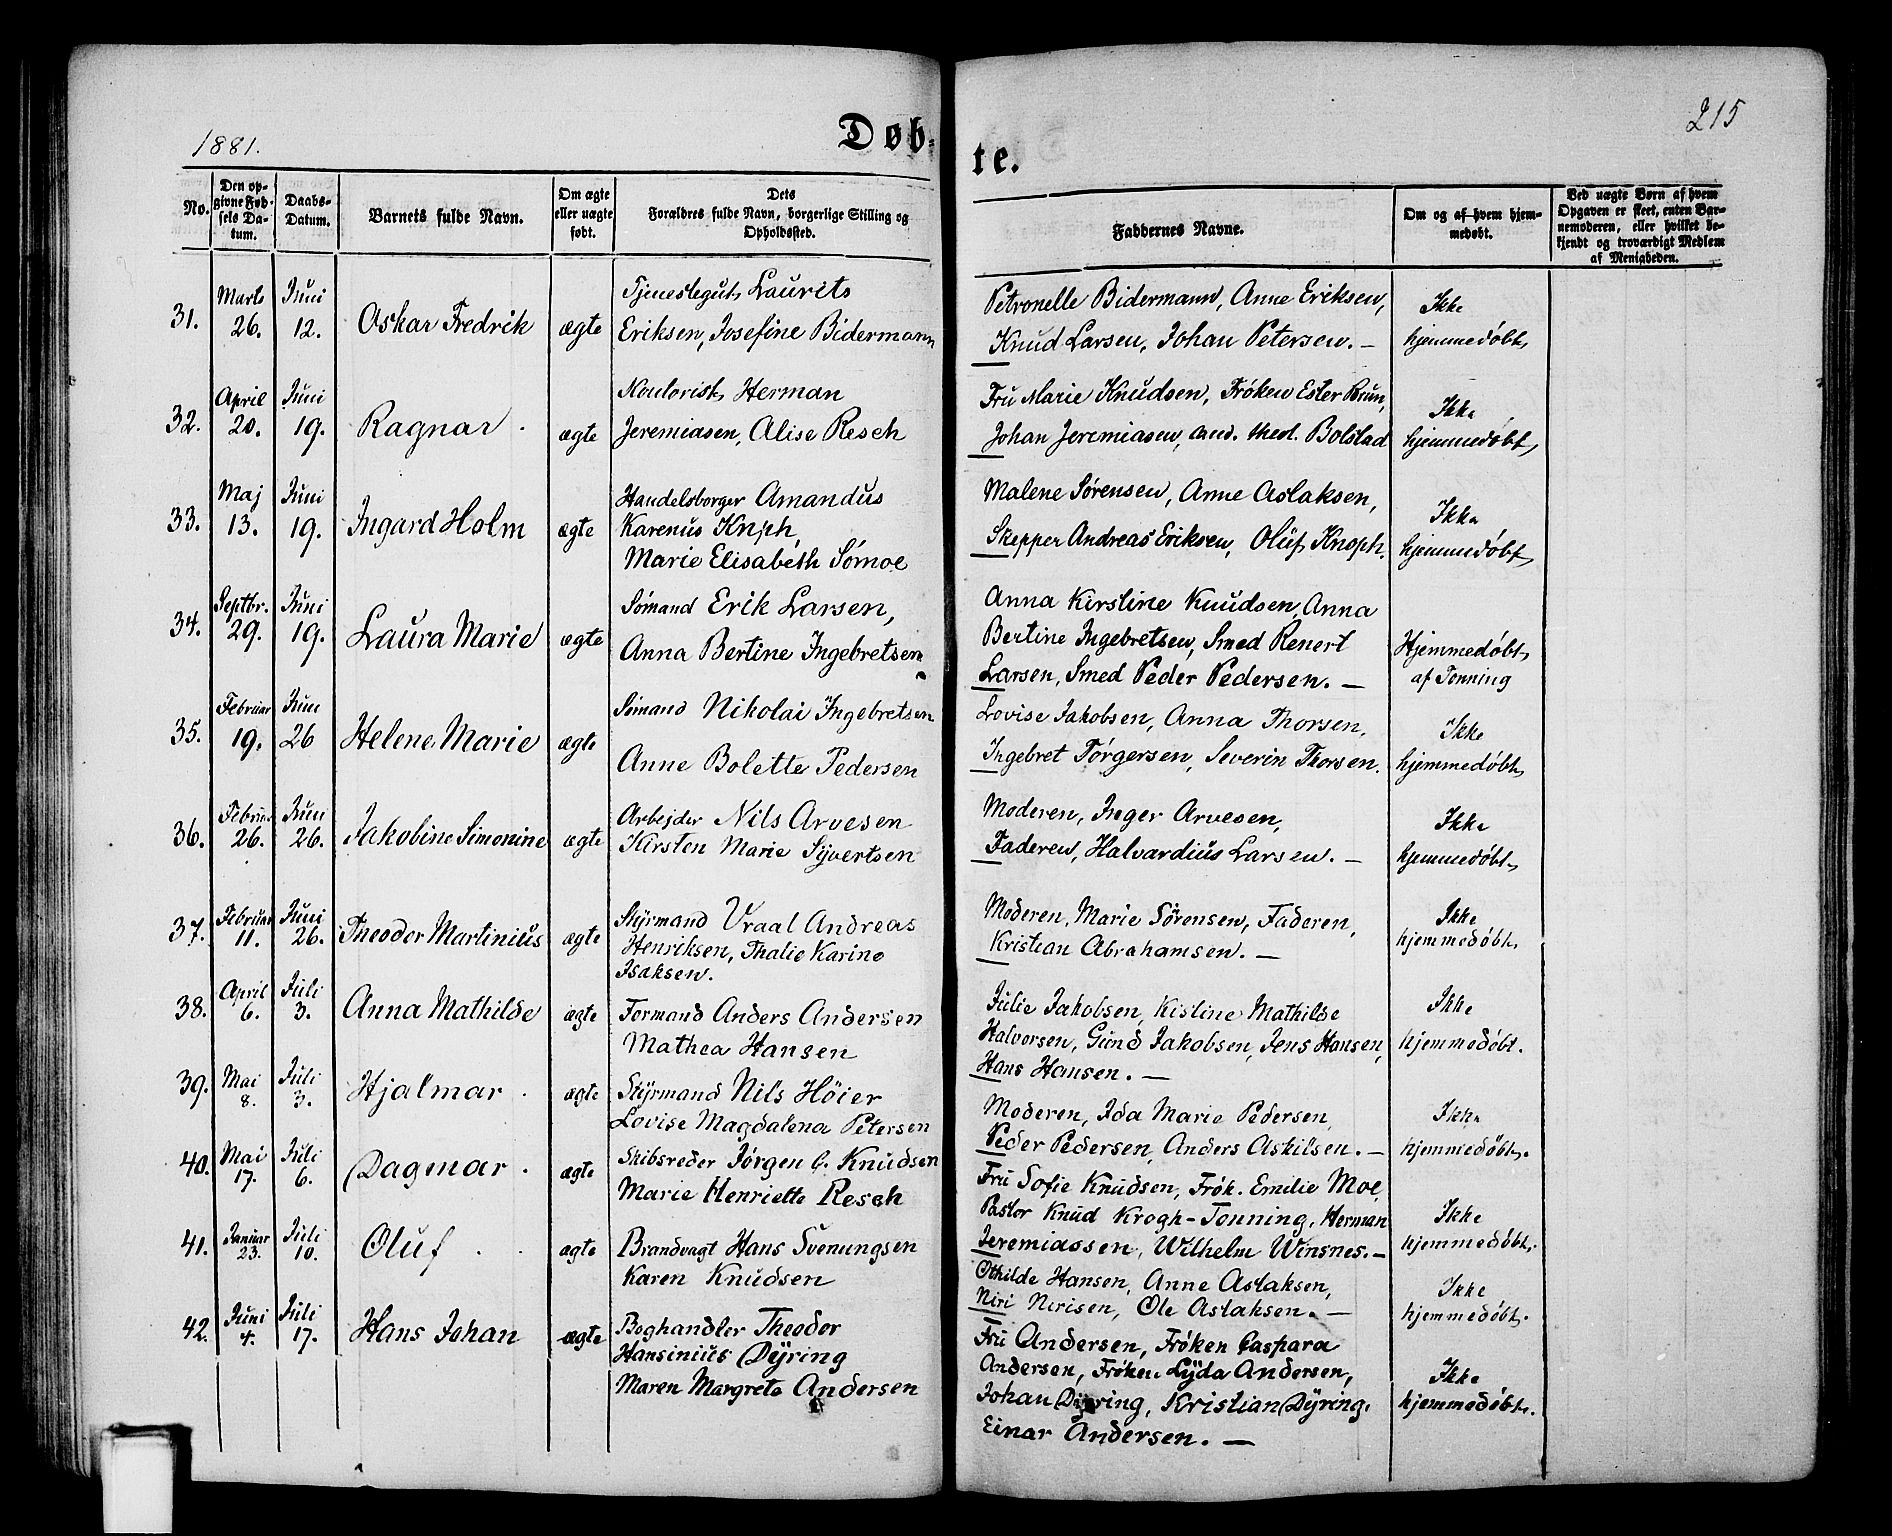 1881.
Døb-
te.
215
No.
Den op-
givne Fød-
sels Da-
tum.
Daabs-
Datum.
Barnets fulde Navn.
Om ægte
eller uægte
født.
Dets
Forældres fulde Navn, borgerlige Stilling og
Opholdssted.
Faddernes Navne.
Om og af hvem hjem-
medøbt.
Ved uægte Børn af hvem
Opgaven er skeet, enten Bar-
nemoderen, eller hvilket be-
kjendt og troværdigt Medlem
af Menigheden.
31. Marts 26. Juni 12. Oskar Fredrik ægte
Tjenestegut Laurits
Eriksen, Josefine Bidermann
Petronelle Bidermann, Anne Eriksen,
Knud Larsen, Johan Petersen. —
Ikke
hjemmedøbt
32. April 20. Juni 19. Ragnar. ægte
Kontorist Herman
Jeremiasen, Alise Resch
Fru Marie Knudsen, Frøken Ester Brun,
Johan Jeremiasen, cand. theol. Bolstad
Ikke
hjemmedøbt
33. Maj 13. Juni 19. Ingard Holm ægte
Handelsborger Amandus
Karenus Knjph,
Marie Elisabeth Sømoe
Malene Sørensen, Anne Aslaksen,
Skepper Andreas Eriksen, Oluf Knoph.
Ikke
hjemmedøbt
34. Septbr. 29. Juni 19. Laura Marie ægte
Sømand Erik Larsen,
Anna Bertine Ingebretsen
Anna Kirstine Knudsen, Anna
Bertine Ingebretsen, Smed Renert
Larsen, Smed Peder Pedersen. —
Hjemmedøbt
af Tonning
35. Februar 19. Juni 26 Helene Marie ægte
Sømand Nikolai Ingebretsen
Anne Bolette Pedersen
Lovise Jakobsen, Anna Thorsen,
Ingebret Törgersen, Severin Thorsen.
Ikke
hjemmedøbt
36. Februar 26. Juni 26. Jakobine Simonine ægte
Arbejder Nils Arvesen
Kirsten Marie Syvertsen
Moderen, Inger Arvesen,
Faderen, Halvardius Larsen. —
Ikke
hjemmedøbt
37. Februar 11. Juni 26. Theodor Martinius ægte
Styrmand Vraal Andreas
Henriksen, Thalie Karine
Isaksen.
Moderen, Marie Sörensen, Faderen,
Kristian Abrahamsen. —
Ikke
hjemmedøbt
38. April 6. Juli 3. Anna Mathilde ægte
Formand Anders Andersen
Mathea Hansen
Julie Jakobsen, Kistine Mathilde
Halvorsen, Gund Jakobsen, Jens Hansen,
Hans Hansen. —
Ikke
hjemmedøbt.
39. Mai 8. Juli 3. Hjalmar. ægte
Styrmand Nils Höier
Lovise Magdalena Petersen
Moderen, Ida Marie Pedersen,
Peder Pedersen, Anders Askilsen. —
Ikke
hjemmedøbt.
40. Mai 17. Juli 6. Dagmar. ægte
Skibsreder Jörgen C. Knudsen
Marie Henriette Resch
Fru Sofie Knudsen, Frøk. Emilie Moe,
Pastor Knud Krogh-Tonning, Herman
Jeremiassen, Wilhelm Winsnes. —
Ikke
hjemmedøbt.
41. Januar 23. Juli 10. Oluf. . ægte
Brandvagt Hans Svenungsen
Karen Knudsen
Othilde Hansen, Anne Aslaksen,
Niri Nirisen, Ole Aslaksen. —
Ikke
hjemmedøbt.
42. Juni 4. Juli 17. Hans Johan ægte
Boghandler Theodor
Hansinius Dyring
Maren Margrete Andersen
Fru Andersen, Frøken Caspara
Andersen, Frøken Lyda Andersen,
Johan Dyring, Kristian Dyring,
Einar Andersen. —
Ikke
hjemmedøbt.